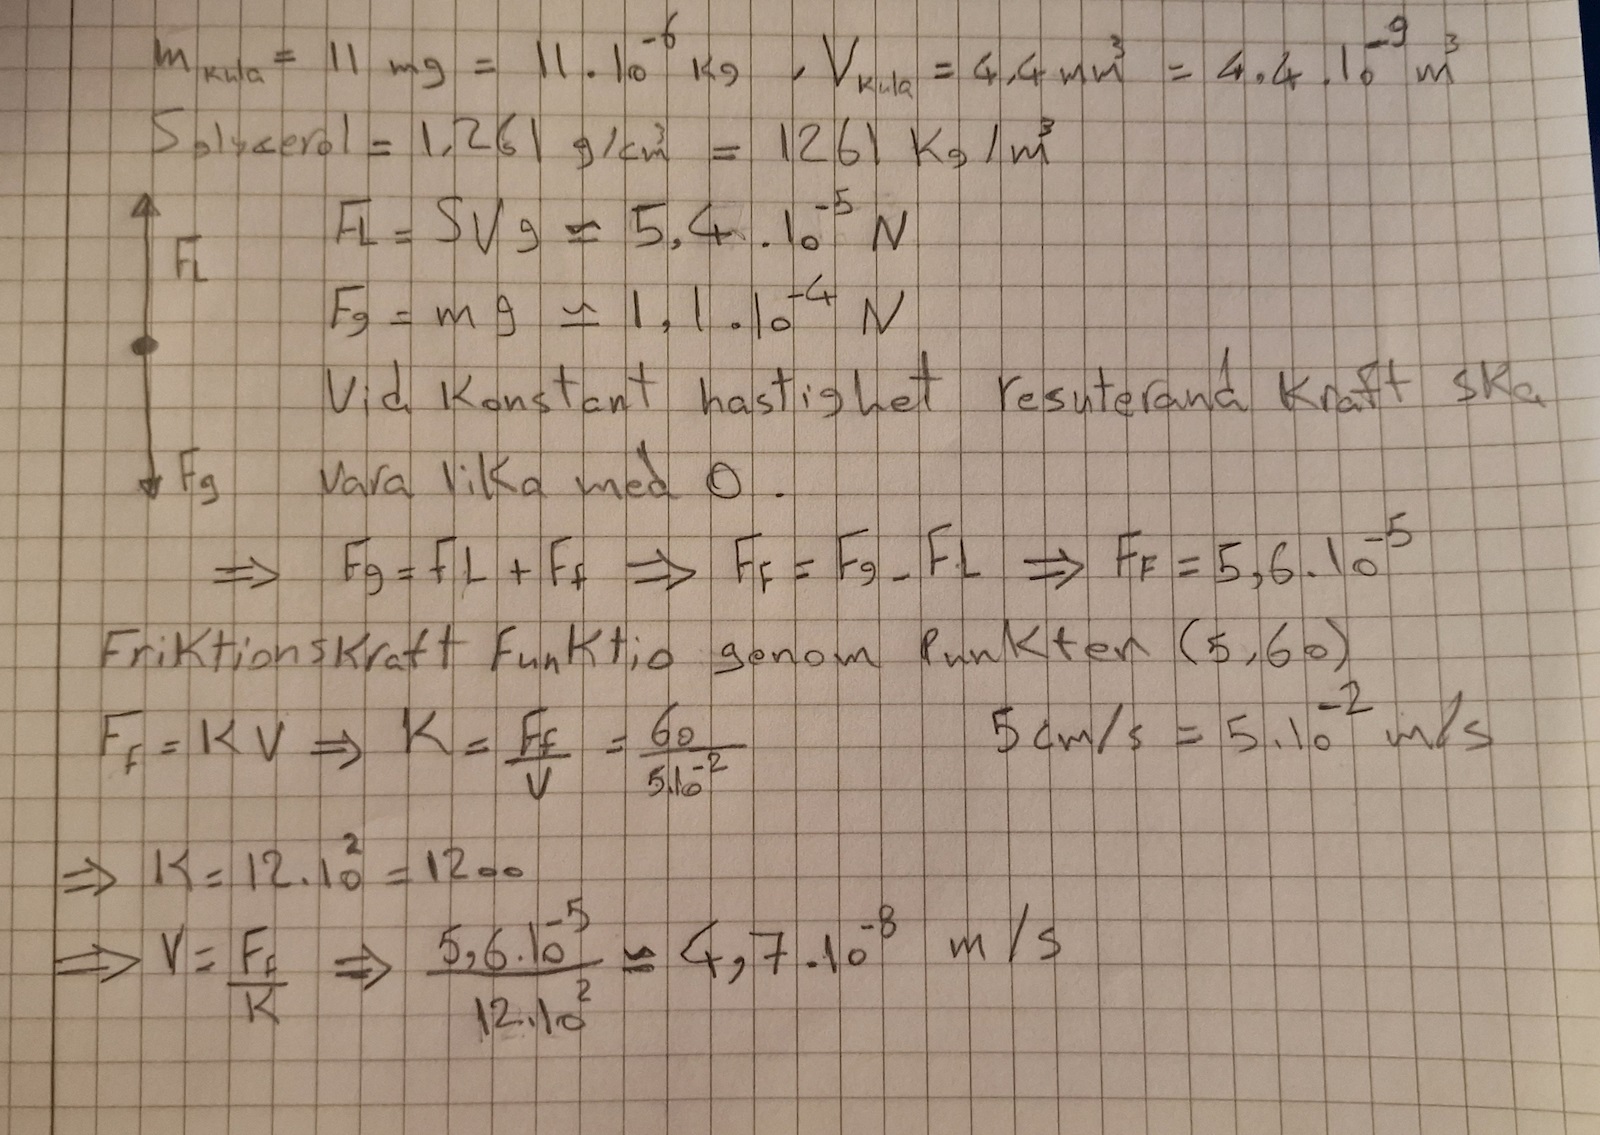 m kula = 11 mg = 11.10⁻⁶ Kg , V kula = 4,4 mm³ = 4,4.10⁻⁹ m³
S glycerol = 1,261 g/cm³ = 1261 Kg/m³
FL = SVg ≃ 5,4.10⁻⁵ N
FL
Fg = mg ≃ 1,1.10⁻⁴ N
Vid Konstant hastighet resuterand Kraft ska
Fg vara lika med 0.
⇒ Fg = FL + Ff ⇒ FF = Fg - FL ⇒ FF = 5,6.10⁻⁵
Friktionskraft Funktio genom Punkten (5,60)
Ff = KV ⇒ K = Ff/V = 60/5.10⁻² 5 cm/s = 5.10⁻² m/s
⇒ K = 12.10² = 1200
⇒ V = Ff/K ⇒ 5,6.10⁻⁵/12.10² ≃ 4,7.10⁻⁸ m/s